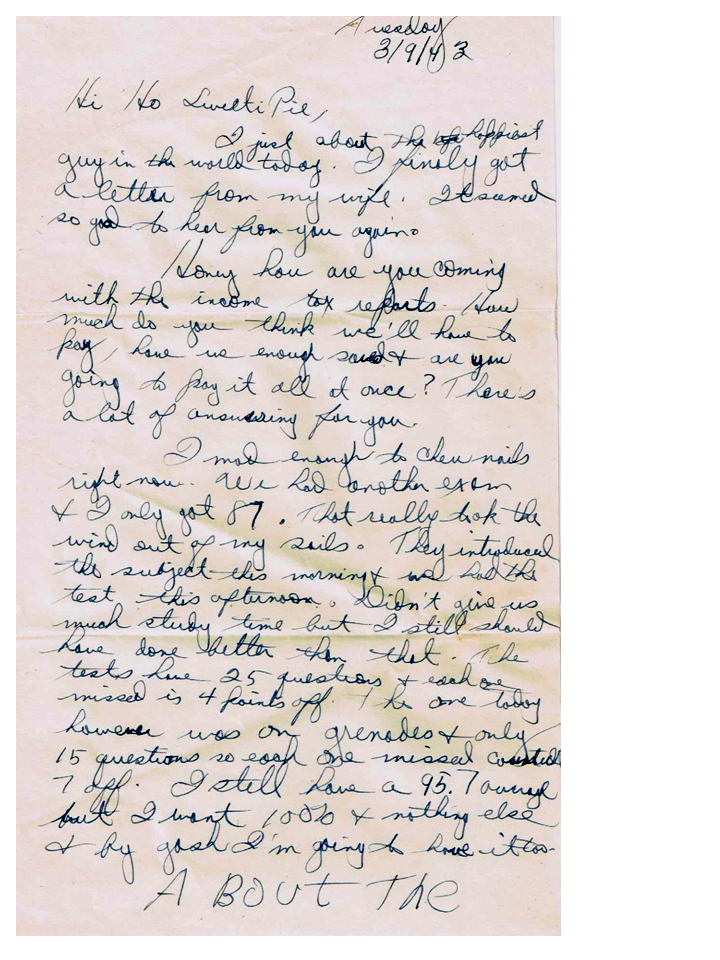 Tuesday
3/9/43
Hi Ho Sweeti Pie,
I just about the happiest
guy in the world today. I finaly got
a letter from my wife. It seemed
so good to hear from you again.
Honey how are you coming
with the income tax reports. How
much do you think we'll have to
pay, have we enough saved & are you
going to pay it all at once? There's
a lot of answering for you.
I mad enough to chew nails
right now. We had another exam
& I only got 87. That really took the
wind out of my sails. They introduced
the subject this morning & we had the
test this afternoon. Didn't give us
much study time but I still should
have done better than that. The
tests have 25 questions & each one
missed is 4 points off. The one today
however was on grenades & only
15 questions so each one missed counted
7 off. I still have a 95.7 average
but I want 100% & nothing else
& by gosh I'm going to have it too.
ABOUT The